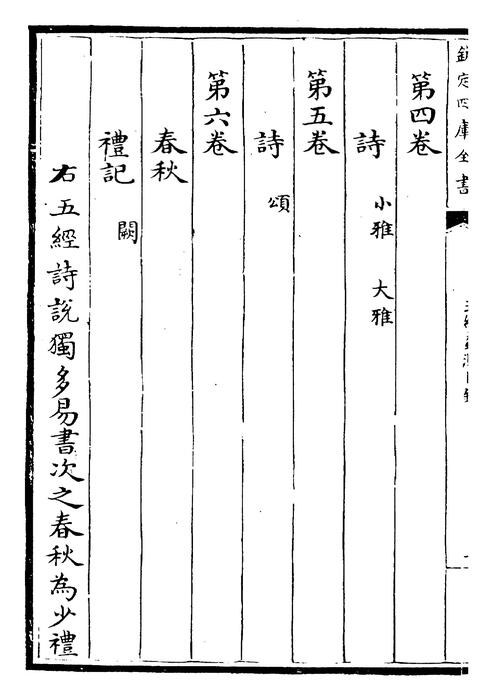 欽定四庫全書
第四卷
詩 小雅 大雅
第五卷
詩 頌
第六卷
春秋
禮記 闕
右五經詩說獨多易書次之春秋為少禮